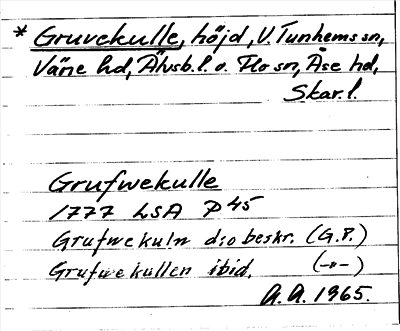 * Gruvekulle, höjd, V. Tunhems sn,
Väne hd, Älvsb. l. o. Flo sn, Åse hd,
Skar. l.
Grufwekulle
1777 LSA P 45
Grufwekuln d:o beskr. (G.P.)
Grufwekullen ibid. (-"-)
A.A. 1965.